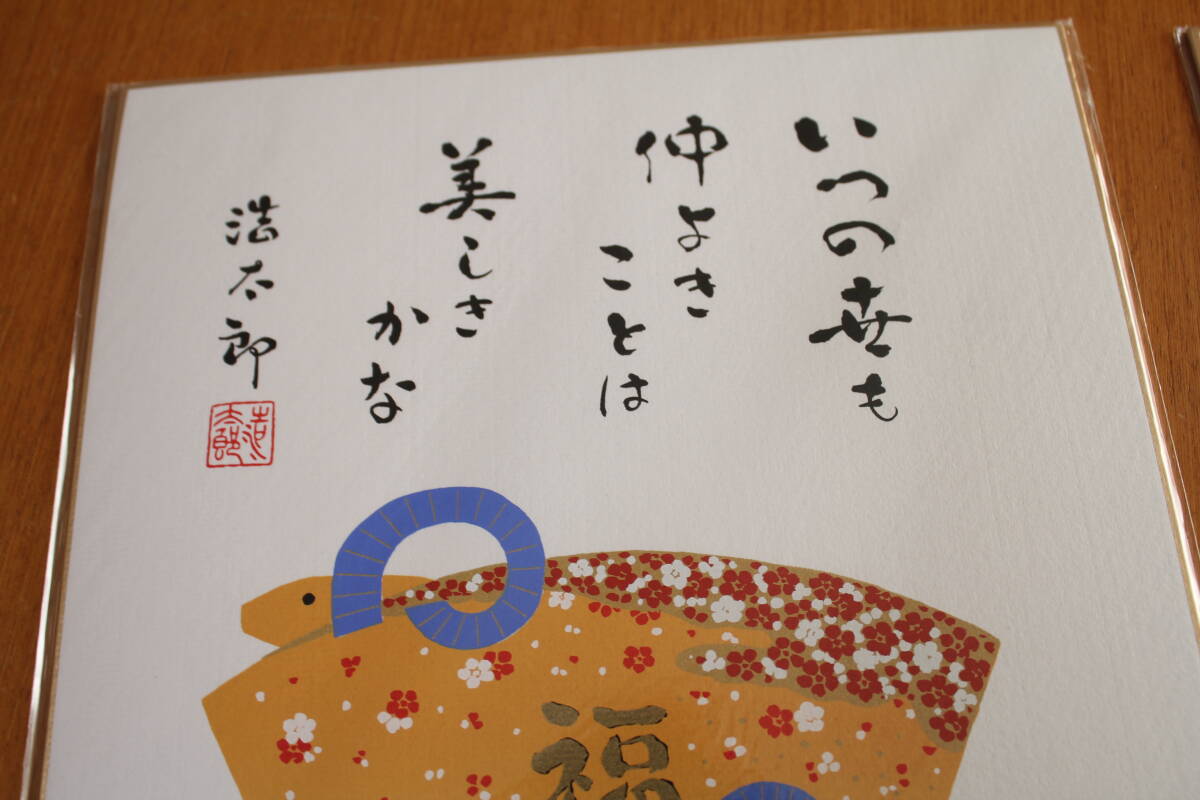 いつの世も
仲よき
ことは
美しき
かな
浩太郎
浩太郎
福